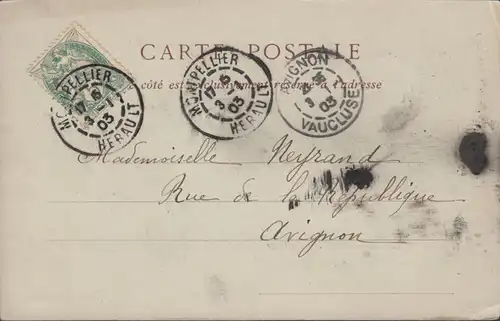 CARTE POSTALE
Ce côté est exclusivement réservé à l'adresse
MONTPELLIER
17 6
3 -1
03
HERAULT
MONTPELLIER
17 6
3 -1
03
HERAULT
AVIGNON
03
VAUCLUSE
Mademoiselle Neyrand
Rue de la République
Avignon